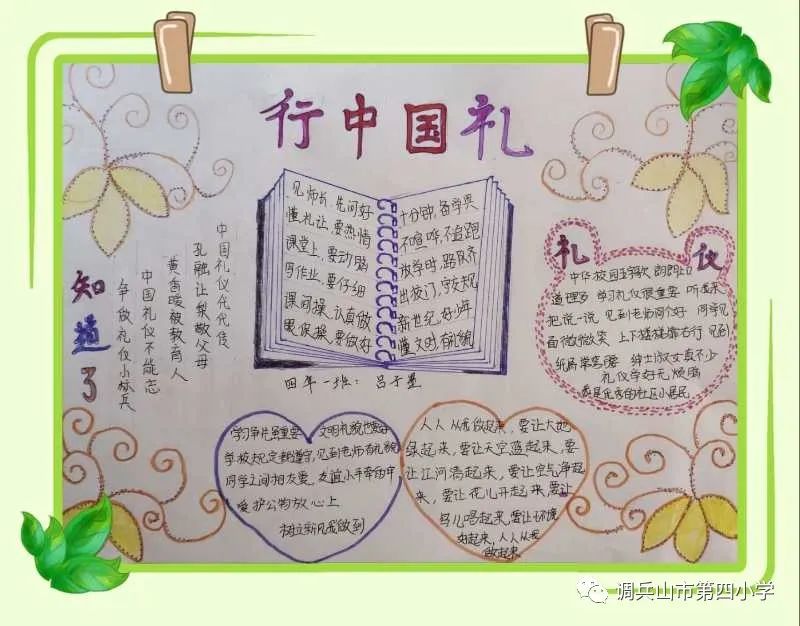 行中国礼
见师长，先问好
懂礼让，要热情
课堂上，要动脑
写作业，要仔细
课间操，认真做
眼保操，要做好
十分钟，备学具
不喧哗，不追跑
放学时，路队齐
出校门，守交规
新世纪，好少年
懂文明，有礼貌
四年一班：吕子墨
知道了
中国礼仪代代传
孔融让梨敬父母
黄香暖被教育人
中国礼仪不能忘
争做礼仪小标兵
礼仪
中华校园
道理多 学习礼仪很重要 听起来
把说一说 见到老师问个好 同学见
面微微笑 上下楼梯靠右行 见到
纸屑 绅士淑女真不少
礼仪学好无烦恼
我是优秀的社区小居民
学习争先重要 文明礼貌也要好
学校规定都遵守，见到老师有礼貌
同学之间相友爱，友谊小手牵
爱护公物放心上
树立新风我做到
人人从我做起来，要让大地
绿起来，要让天空蓝起来，要
让江河清起来，要让空气净起
来，要让花儿开起来，要让
鸟儿唱起来，要让环境
好起来，人人从我
做起来
调兵山市第四小学